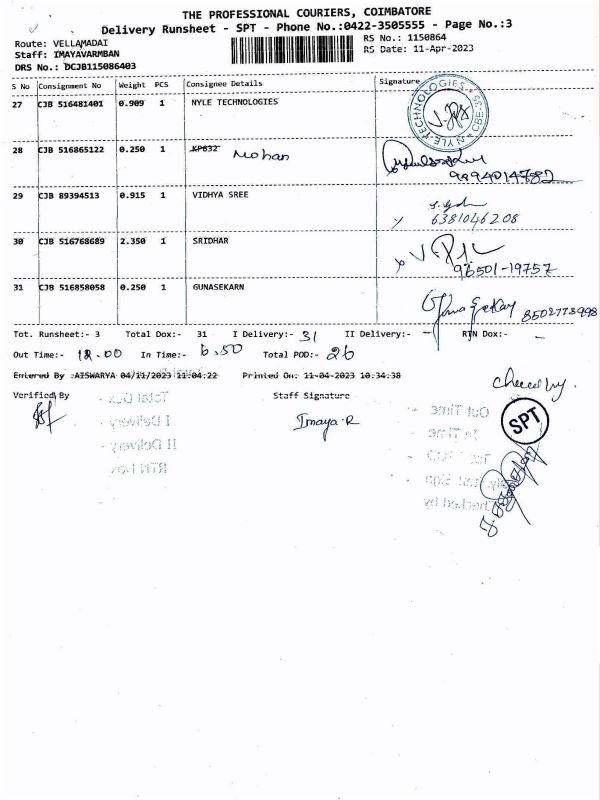 THE PROFESSIONAL COURIERS, COIMBATORE
Delivery Runsheet - SPT - Phone No.:0422-3505555 - Page No.:3
Route: VELLAMADAI RS No.: 1150864
Staff: IMAYAVARMBAN RS Date: 11-Apr-2023
DRS No.: DCJB115086403
S No Consignment No Weight PCS Consignee Details Signature
27 CJB 516481401 0.909 1 NYLE TECHNOLOGIES
NYLE TECHNOLOGIES CBE-35
28 CJB 516865122 0.250 1 KP632 Mohan
9894014782
29 CJB 89394513 0.915 1 VIDHYA SREE
6381046208
30 CJB 516768689 2.350 1 SRIDHAR
96501-19757
31 CJB 516858058 0.250 1 GUNASEKARN
8502773998
Tot. Runsheet:- 3 Total Dox:- 31 I Delivery:- 31 II Delivery:- - RTN Dox:- -
Out Time:- 12.00 In Time:- 6.50 Total POD:- 26
Entered By :AISWARYA 04/11/2023 11:04:22 Printed On: 11-04-2023 10:34:38
Verified By Staff Signature
Imaya.R
SPT
Total Dox -
I Delivery -
II Delivery -
RTN Dox
Out Time -
In Time -
Checked by